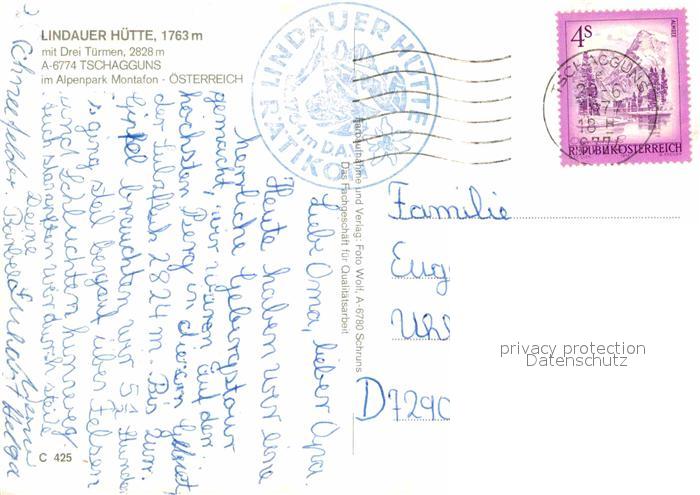 LINDAUER HÜTTE, 1763 m
mit Drei Türmen, 2828 m
A-6774 TSCHAGGUNS
im Alpenpark Montafon - ÖSTERREICH
LINDAUER HÜTTE
RÄTIKON
4 S
ALMSEE
REPUBLIK ÖSTERREICH
TSCHAGGUNS
Farbaufnahme und Verlag: Foto Wolf, A-6780 Schruns
Das Fachgeschäft für Qualitätsarbeit
Liebe Oma, lieber Opa.
Heute haben wir eine
herrliche Gebirgstour
gemacht, wir waren auf der
höchsten Berg in diesem Gebiet,
der Sulzfluh 2824 m. Bis zum
Gipfel brauchten wir 5½ Stunden
ging steil bergauf über Felsen
und Schluchten hinweg.
wir durch
Deine
Bärbel
Helga
Familie
Eug
D7290
privacy protection
Datenschutz
C 425